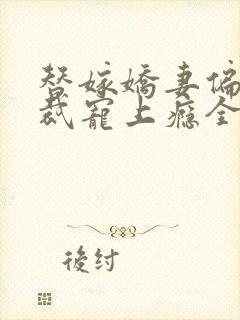 替嫁嬌妻偏
裁寵上癮全
後紂